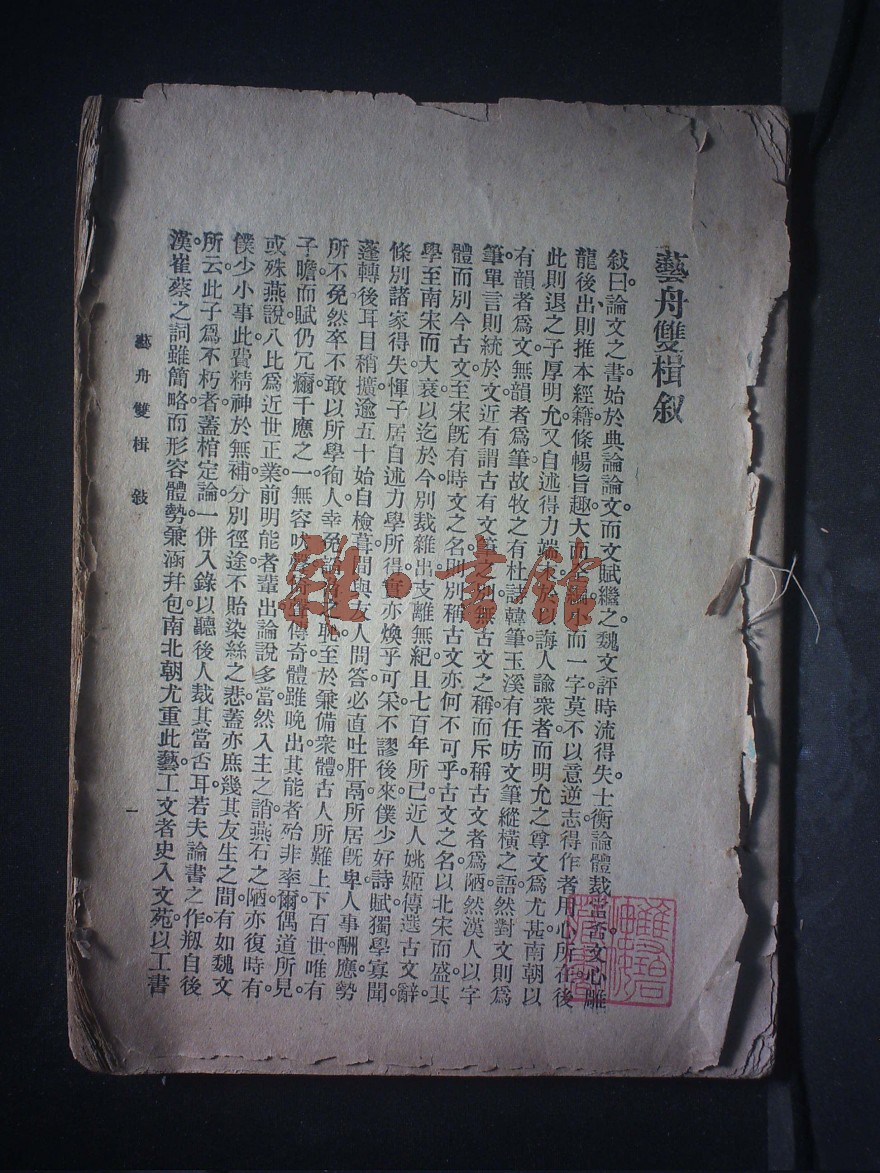 藝舟雙楫叙
敍曰。論文之書。始於典論論文。而文賦繼之。魏文評時流得失。士衡論體裁當否。文心雕
龍後出。則推本經籍。條暢旨趣。大而全編。小而一字。莫不以意逆志。得作者用心所在。後
此則退之子厚明允。又自述得力端以誨人諭衆者。而明允之尊文爲尤甚。南朝以
有韻者爲文。無韻者爲筆。故牧之有杜詩韓筆。玉溪有任昉文筆縱橫之語。然對文則爲
筆。單言則統於文。近有謂古有文筆之別。無古文之稱。而斥稱古文者爲陋。然漢人以字
體而別今古文。至宋旣有時文之名。則別稱古文。亦何不可乎。古文之名。以北宋而盛。其
學至南宋而大衰。以迄於今。別裁雜出。支離無紀。且七百年所已。近人姚姬傳選古文辭。
條別諸家得失。惲子居自述力學所得。亦煥乎可采。不謬後來。僕少好詩賦。獨學寡聞。
蓬轉後耳目稍擴。逾五十始自檢葺。間與友人問答。必直吐肝鬲。所居旣卑。人事酬應。勢
所不免。然卒不敢以所學徇人。幸免恥。至於兼備衆體。古人所難。上下百世。唯有
子瞻。而賦仍冗癰。千應之一。無容吹傳奇體雖晚出。其能者殆非率爾偶道所見。
或殊燕說。八比爲近世正業。前明能者輩出。論說多當。然入主之誚。燕石之陋。亦復時有。
僕少小事此。費精神於無補。分別徑途。不貽染絲之悲。蓋亦庶幾。其友生之間。有如魏文
所云此子爲不朽者。蓋棺定論。一併入錄。以聽後人裁其當否耳。若夫論書之作。剏自後
漢。崔蔡之詞。雖簡略而形容體勢。兼涵幷包。南北朝尤重此藝。工文者史入文苑。以工書
藝舟雙楫 敍
一
雜·書館